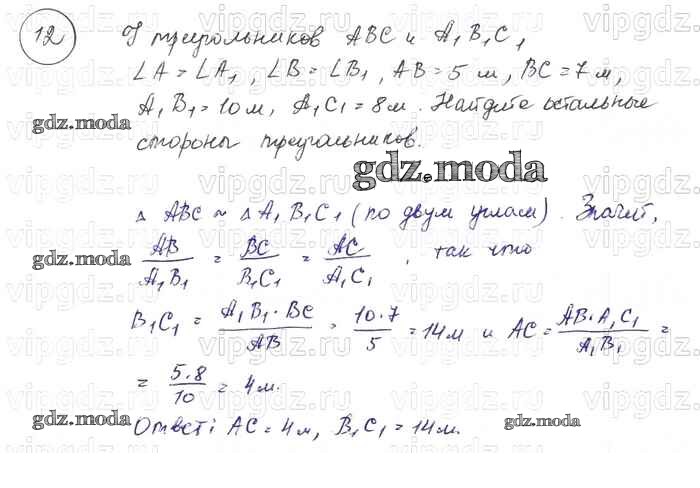 12
У треугольников ABC и A₁B₁C₁
∠A = ∠A₁, ∠B = ∠B₁, AB = 5 м, BC = 7 м,
A₁B₁ = 10 м, A₁C₁ = 8 м. Найдите остальные
стороны треугольников.
gdz.moda
gdz.moda
△ ABC ~ △ A₁B₁C₁ (по двум углам). Значит,
AB/A₁B₁ = BC/B₁C₁ = AC/A₁C₁, так что
gdz.moda
B₁C₁ = A₁B₁·BC/AB = 10·7/5 = 14 м и AC = AB·A₁C₁/A₁B₁ =
= 5·8/10 = 4 м.
Ответ: AC = 4 м, B₁C₁ = 14 м.
gdz.moda
gdz.moda
gdz.moda
vipgdz.ru